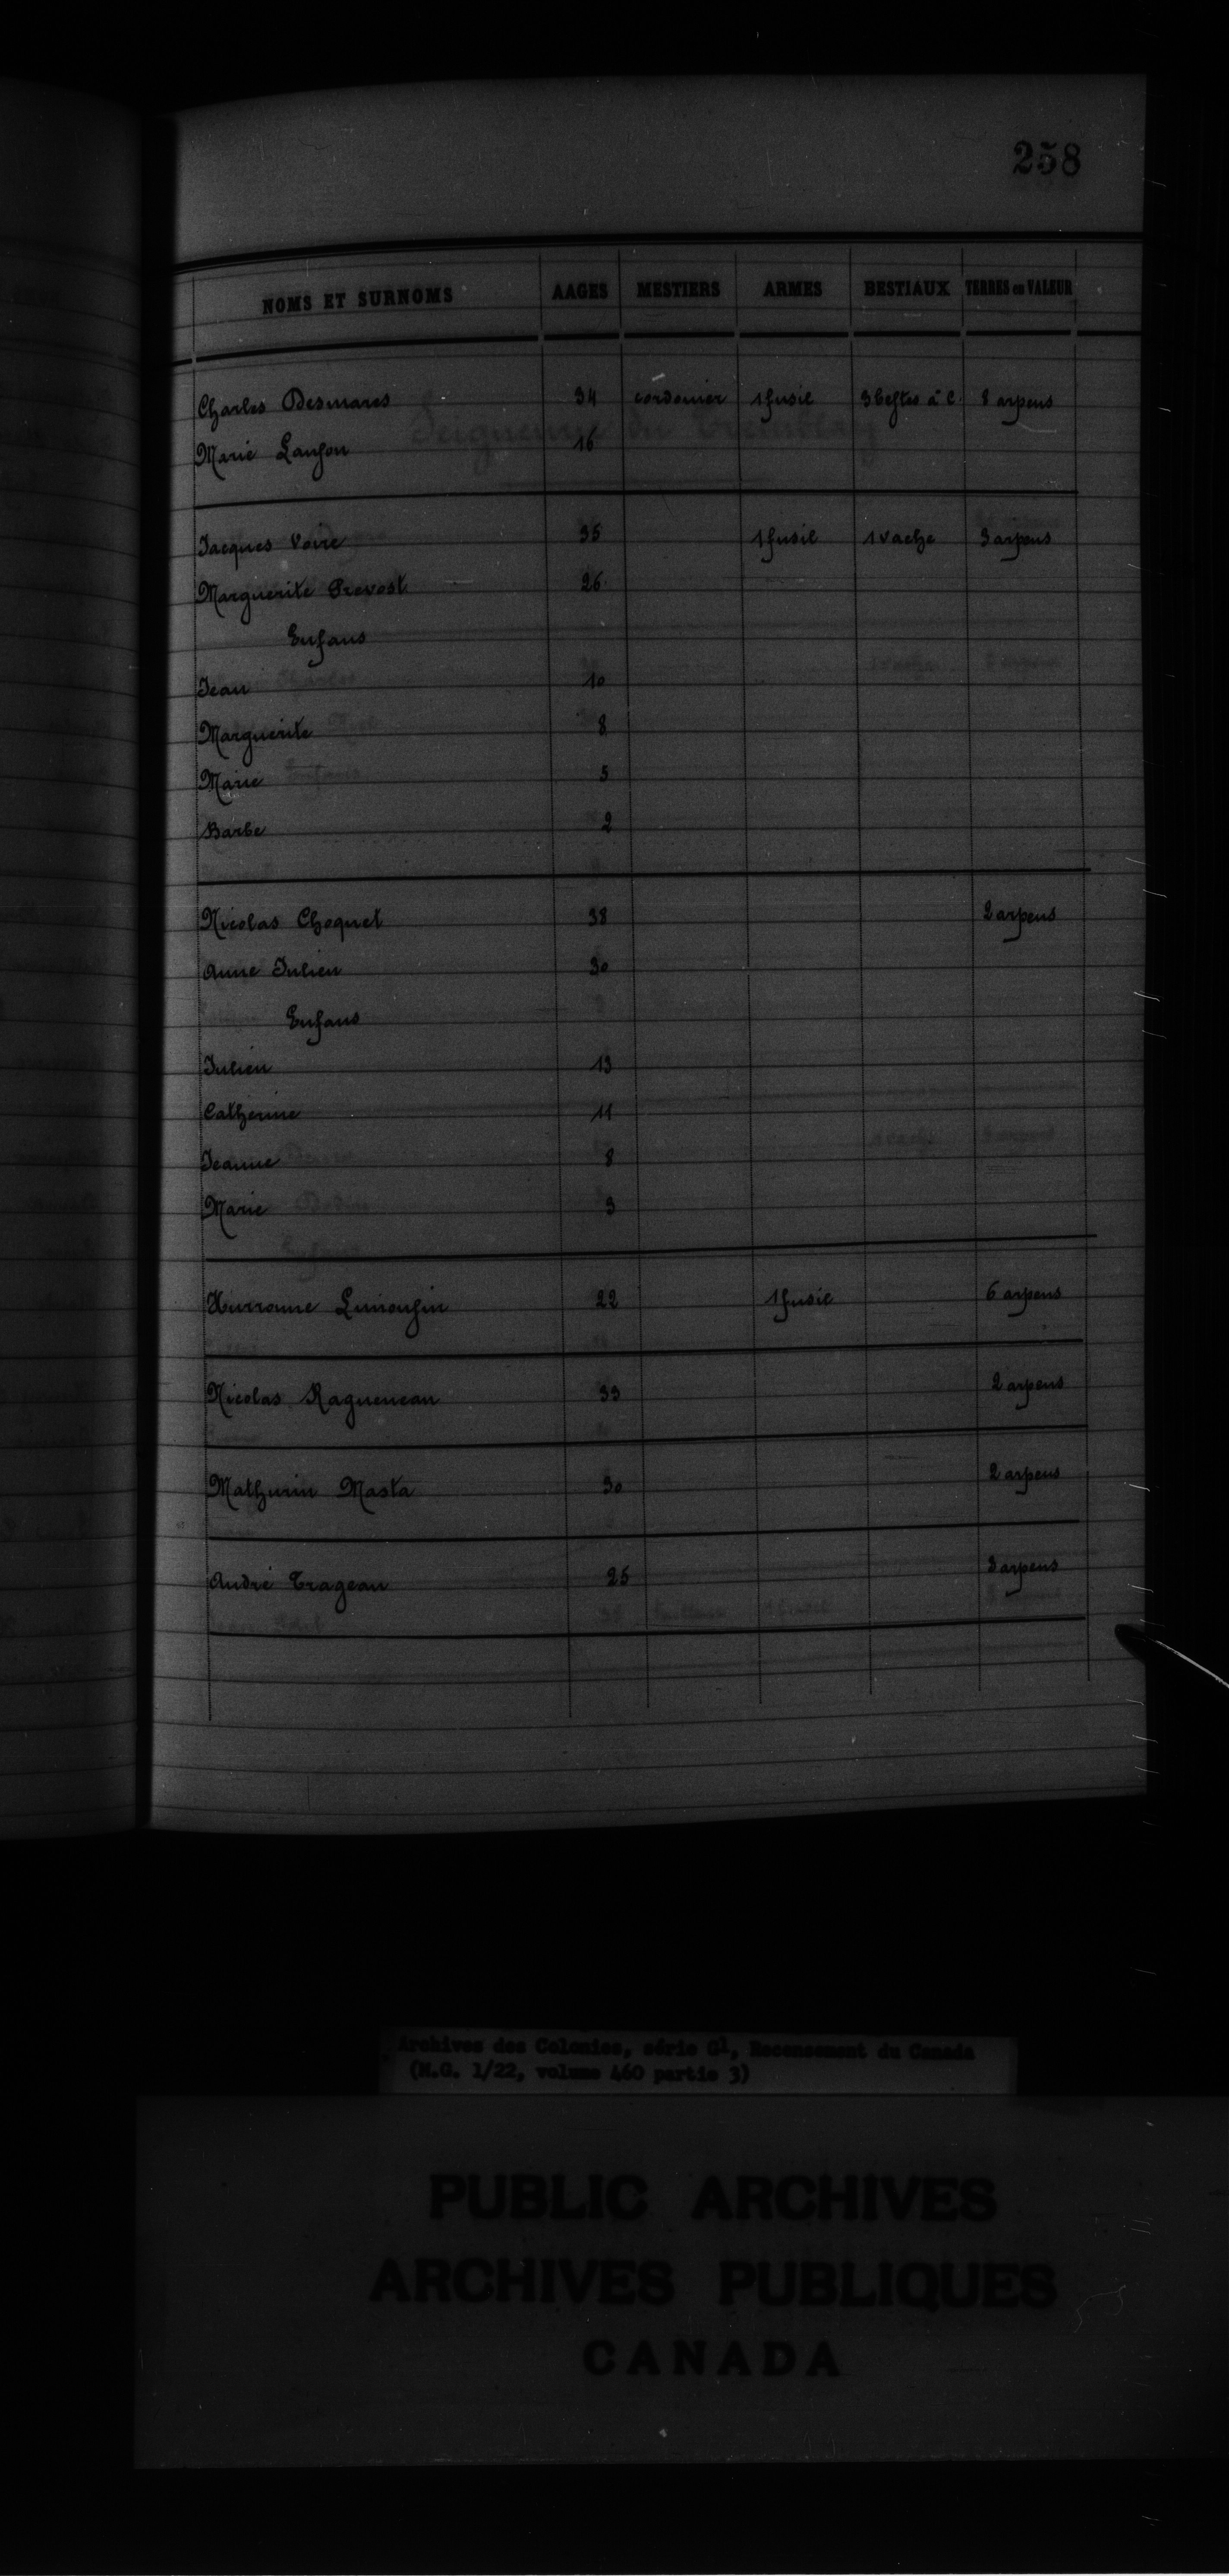 258
NOMS ET SURNOMS AAGES MESTIERS ARMES BESTIAUX TERRES ou VALEUR
Charles Desmares 34 cordonier 1 fusil 3 bestes à c. 8 arpens
Marie Lanson 16
Jacques Voire 35 1 fusil 1 vache 3 arpens
Marguerite Prevost 26
Enfans
Jean 10
Marguerite 8
Marie 5
Barbe 2
Nicolas Choquet 38 2 arpens
Anne Julien 30
Enfans
Julien 13
Catherine 11
Jeanne 8
Marie 3
Limousin 22 1 fusil 6 arpens
Nicolas Ragueneau 33 2 arpens
Mathurin Masta 30 2 arpens
André Trageau 25 3 arpens
Archives des Colonies, série G1, Recensement du Canada
(M.G. 1/22, volume 460 partie 3)
PUBLIC ARCHIVES
ARCHIVES PUBLIQUES
CANADA